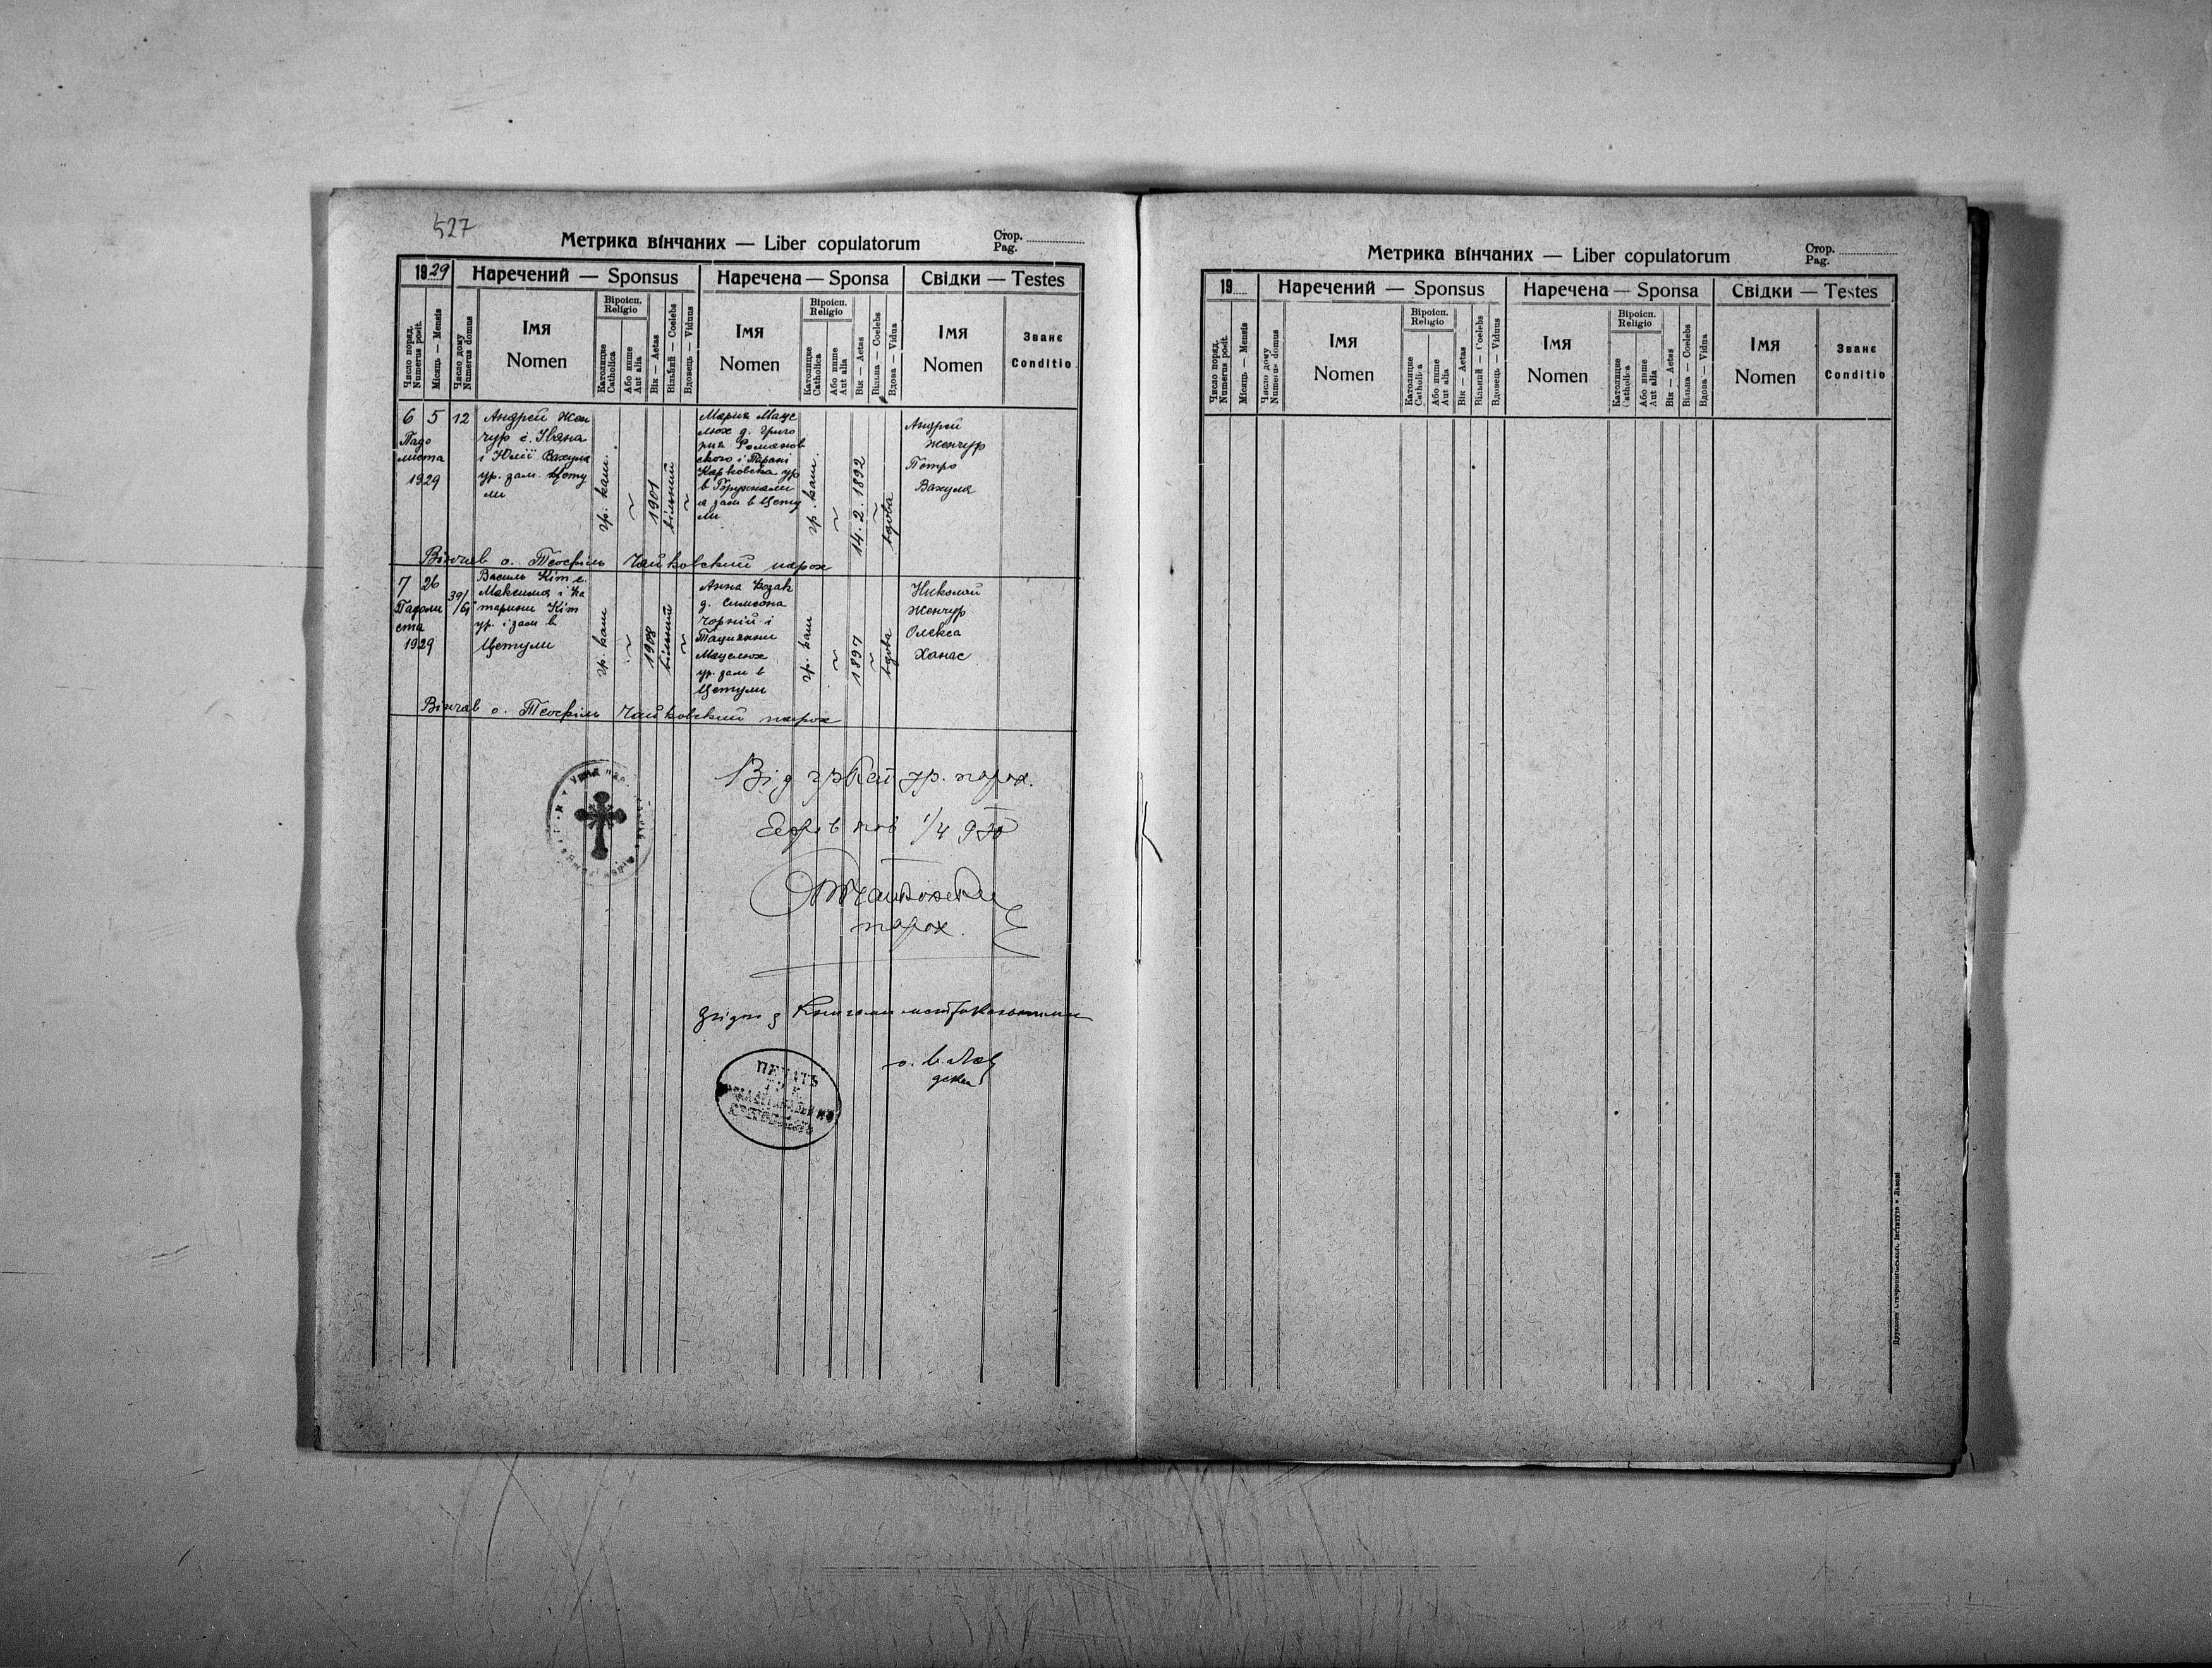 527
Метрика вінчаних — Liber copulatorum
Стор.
Pag.
1929
Наречений — Sponsus
Наречена — Sponsa
Свідки — Testes
Число поряд.
Numerus posit.
Місяць — Mensis
Число дому
Numerus domus
Імя
Nomen
Віроісп.
Religio
Католицке
Catholica
Або инше
Aut alia
Вік — Aetas
Вільний — Coelebs
Вдовець — Viduus
Імя
Nomen
Віроісп.
Religio
Католицке
Catholica
Або инше
Aut alia
Вік — Aetas
Вільна — Coelebs
Вдова — Vidua
Імя
Nomen
Званє
Conditio
6 5
Падо
листа
1929
12
Андрей Жен
чур с. Івана
і Юлії Вахула
ур. зам. Цету
ли
гр. кат.
1901
вільний
Мария Маце
люх д. Григо
рия Романов
ского і
ур
в
а зам в Цету
ли
гр. кат.
14. 2. 1892
вдова
Андрей
Женчур
Петро
Вахула
Вінчав о. Теофіль Чайковский парох
7 26
Падоли
ста
1929
39/
Василь Кіт с.
Максима і Ка
тарини Кіт
ур. і зам в
Цетули
гр. кат
1908
вільний
Анна Козак
д. Симеона
Чорний і
Мацелюх
ур. зам в
Цетули
гр. кат
1897
вдова
Николай
Женчур
Олекса
Ханас
Вінчав о. Теофіль Чайковский парох
Від гр кат ур. парох.
1/4
парох.
Згідно з Книгами метрикальними
о.
декан
ПЕЧАТЬ
Метрика вінчаних — Liber copulatorum
Стор.
Pag.
19
Наречений — Sponsus
Наречена — Sponsa
Свідки — Testes
Число поряд.
Numerus posit.
Місяць — Mensis
Число дому
Numerus domus
Імя
Nomen
Віроісп.
Religio
Католицке
Catholica
Або инше
Aut alia
Вік — Aetas
Вільний — Coelebs
Вдовець — Viduus
Імя
Nomen
Віроісп.
Religio
Католицке
Catholica
Або инше
Aut alia
Вік — Aetas
Вільна — Coelebs
Вдова — Vidua
Імя
Nomen
Званє
Conditio